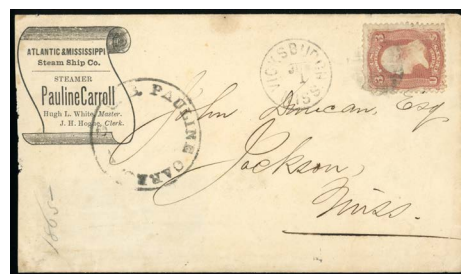 ATLANTIC & MISSISSIPPI
Steam Ship Co.
STEAMER
Pauline Carroll
Hugh L. White, Master.
J. H. Hogue, Clerk.
PAULINE CAR
VICKSBURG
MISS
3 3
John Duncan, Esq
Jackson,
Miss.